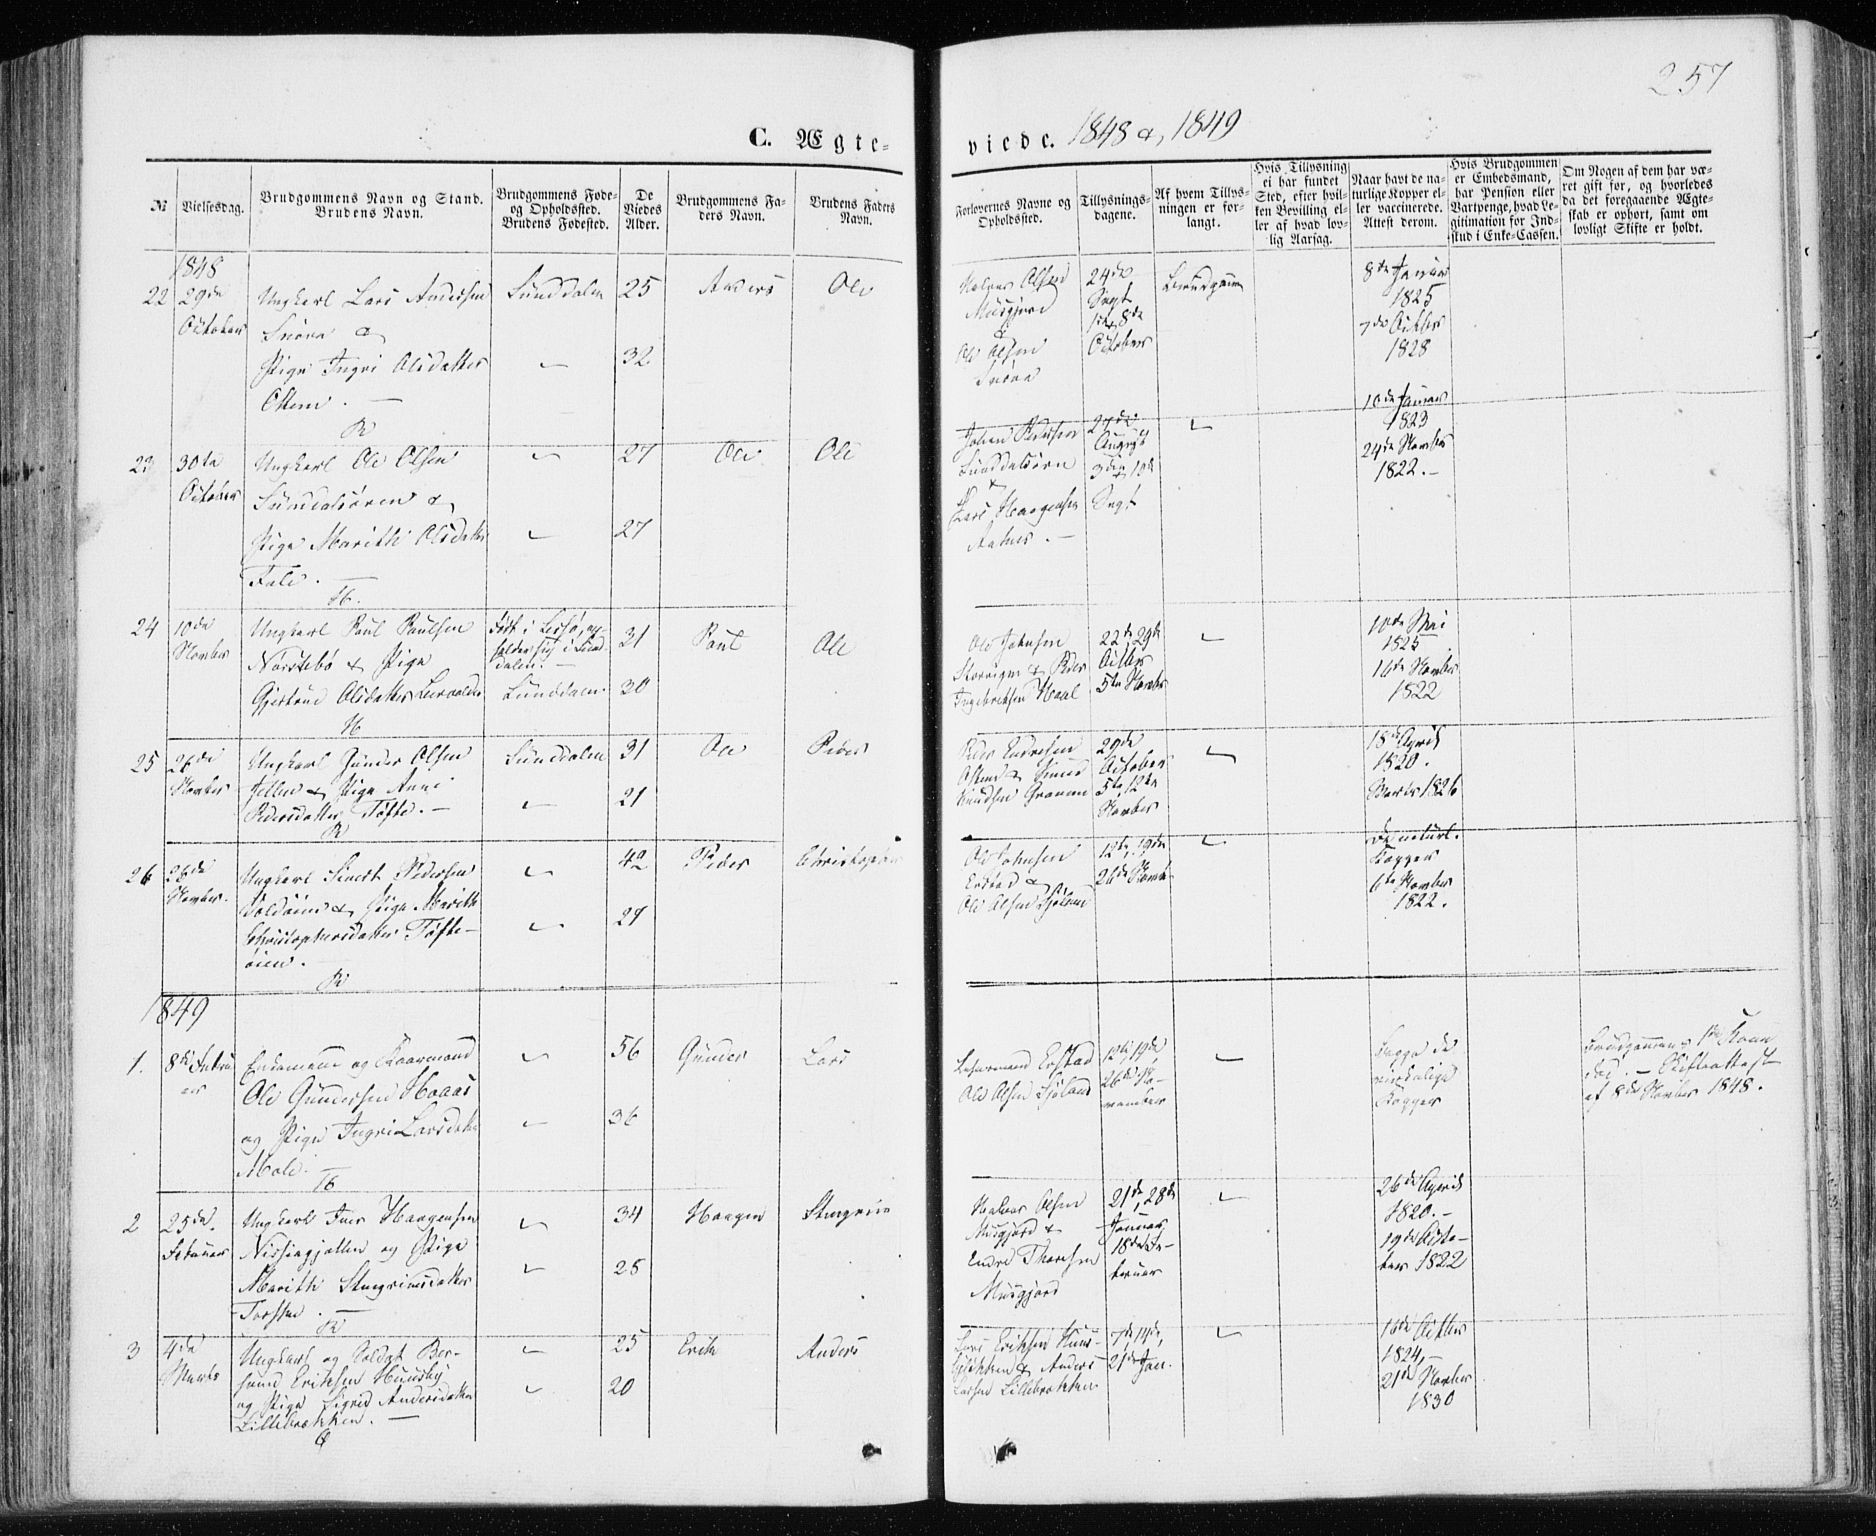 257
C. Ægte-
viede. 1848 &, 1849
№
Vielsesdag.
Brudgommens Navn og Stand.
Brudens Navn.
Brudgommens Føde-
og Opholdssted.
Brudens Fødested.
De
Viedes
Alder.
Brudgommens Fa-
ders Navn.
Brudens Faders
Navn.
Forlovernes Navne og
Opholdssted.
Tillysnings-
dagene.
Af hvem Tillys-
ningen er for-
langt.
Hvis Tillysning
ei har fundet
Sted, efter hvil-
ken Bevilling el-
ler af hvad lov-
lig Aarsag.
Naar havt de na-
turlige Kopper el-
ler vaccinerede.
Attest derom.
Hvis Brudgommen
er Embedsmand,
har Pension eller
Vartpenge, hvad Le-
gitimation for Ind-
skud i Enke-Cassen.
Om Nogen af dem har væ-
ret gift før, og hvorledes
da det foregaaende Ægte-
skab er ophørt, samt om
lovligt Skifte er holdt.
1848
22
29de
October
Ungkarl Lars Andersen
Snøva &
Pige Ingri Olsdatter
Ottem. —
Sunddalen
25
32
Anders
Ole
Halvor Olsen
Musgjerd
&
Ole Olsen
Snøva
24de
Sept
1ste, 8de
October
Brudgom
8de Januar
1825
7de Octbr
1828
23
30te
October
Ungkarl Ole Olsen
Sundalsøren &
Pige Marith Olsdatter
Fale. —
27
27
Ole
Ole
Johan Pedersen
Sunddalsøren
&
Lars Haagensen
27de
August
3de, 10de
Sept
10de Januar
1823
24de Novbr
1822. —
24
10de
Novbr
Ungkarl Poul Poulsen
Norstebø & Pige
Gjertrud Olsdatter
Født i Lesjø, op-
holder sig i Sund-
dalen. —
Sunddalen
31
30
Poul
Ole
Ole Johnsen
& Peder
Ingebrigtsen Hoal
22de, 29de
Octbr
5te Novbr
10de Mai
1825
16de Novbr
1822
25
26de
Novbr
Ungkarl Gunder Olsen
Jellen & Pige Anne
Pedersdatter Tøfte. —
Sunddalen
31
21
Ole
Peder
Peder Endresen
& Simen
Knudsen Gravem
29de
October
5te, 12te
Novbr
18de April
1820.
Novbr 1826
26
26de
Novbr.
Ungkarl Sivert Pedersen
& Pige Marith
Christophersdatter Tøfte-
øien. —
42
29
Peder
Christopher
Ole Johnsen
Erstad &
Ole Olsen Sjøland
12te, 19de
26de Novbr
De naturl.
Kopper
6te Novbr
1822.
1849
1.
8de Febru
ar
Enkemand og Gaarmand
Ole Gundersen Hoaas
og Pige Ingri Larsdatter
Mole.
56
36
Gunder
Lars
Lehnsmand Erstad
Ole Olsen Sjøland
12te, 19de
26de No-
vember
Begge de
virkelige
Kopper
Brudgommens 1ste Kone
død. — Skifteattest
af 8de Novbr 1848.
2
25de.
Februar
Ungkarl Iver Haagensen
og Pige
Marith Stengrimsdatter
Torske. —
34
25
Haagen
Stengrim
Halvor Olsen
Musgjerd &
Endre Thoresen
Musgjerd
21de, 28de
Januar
18de Fe-
bruar
26de April
1820. —
19de Octo-
ber 1822
3
4de
Marts
Ungkarl og Soldat Ber-
sund Eriksen Huusby
og Pige Sigrid Andersdatter
Lillebrekken. —
25
20
Erik
Anders
Lars Eriksen Huus-
& Anders
Larsen Lillebrekken
7de, 14de,
21de Jan.
16de Octbr
1824,
21de Novbr
1830